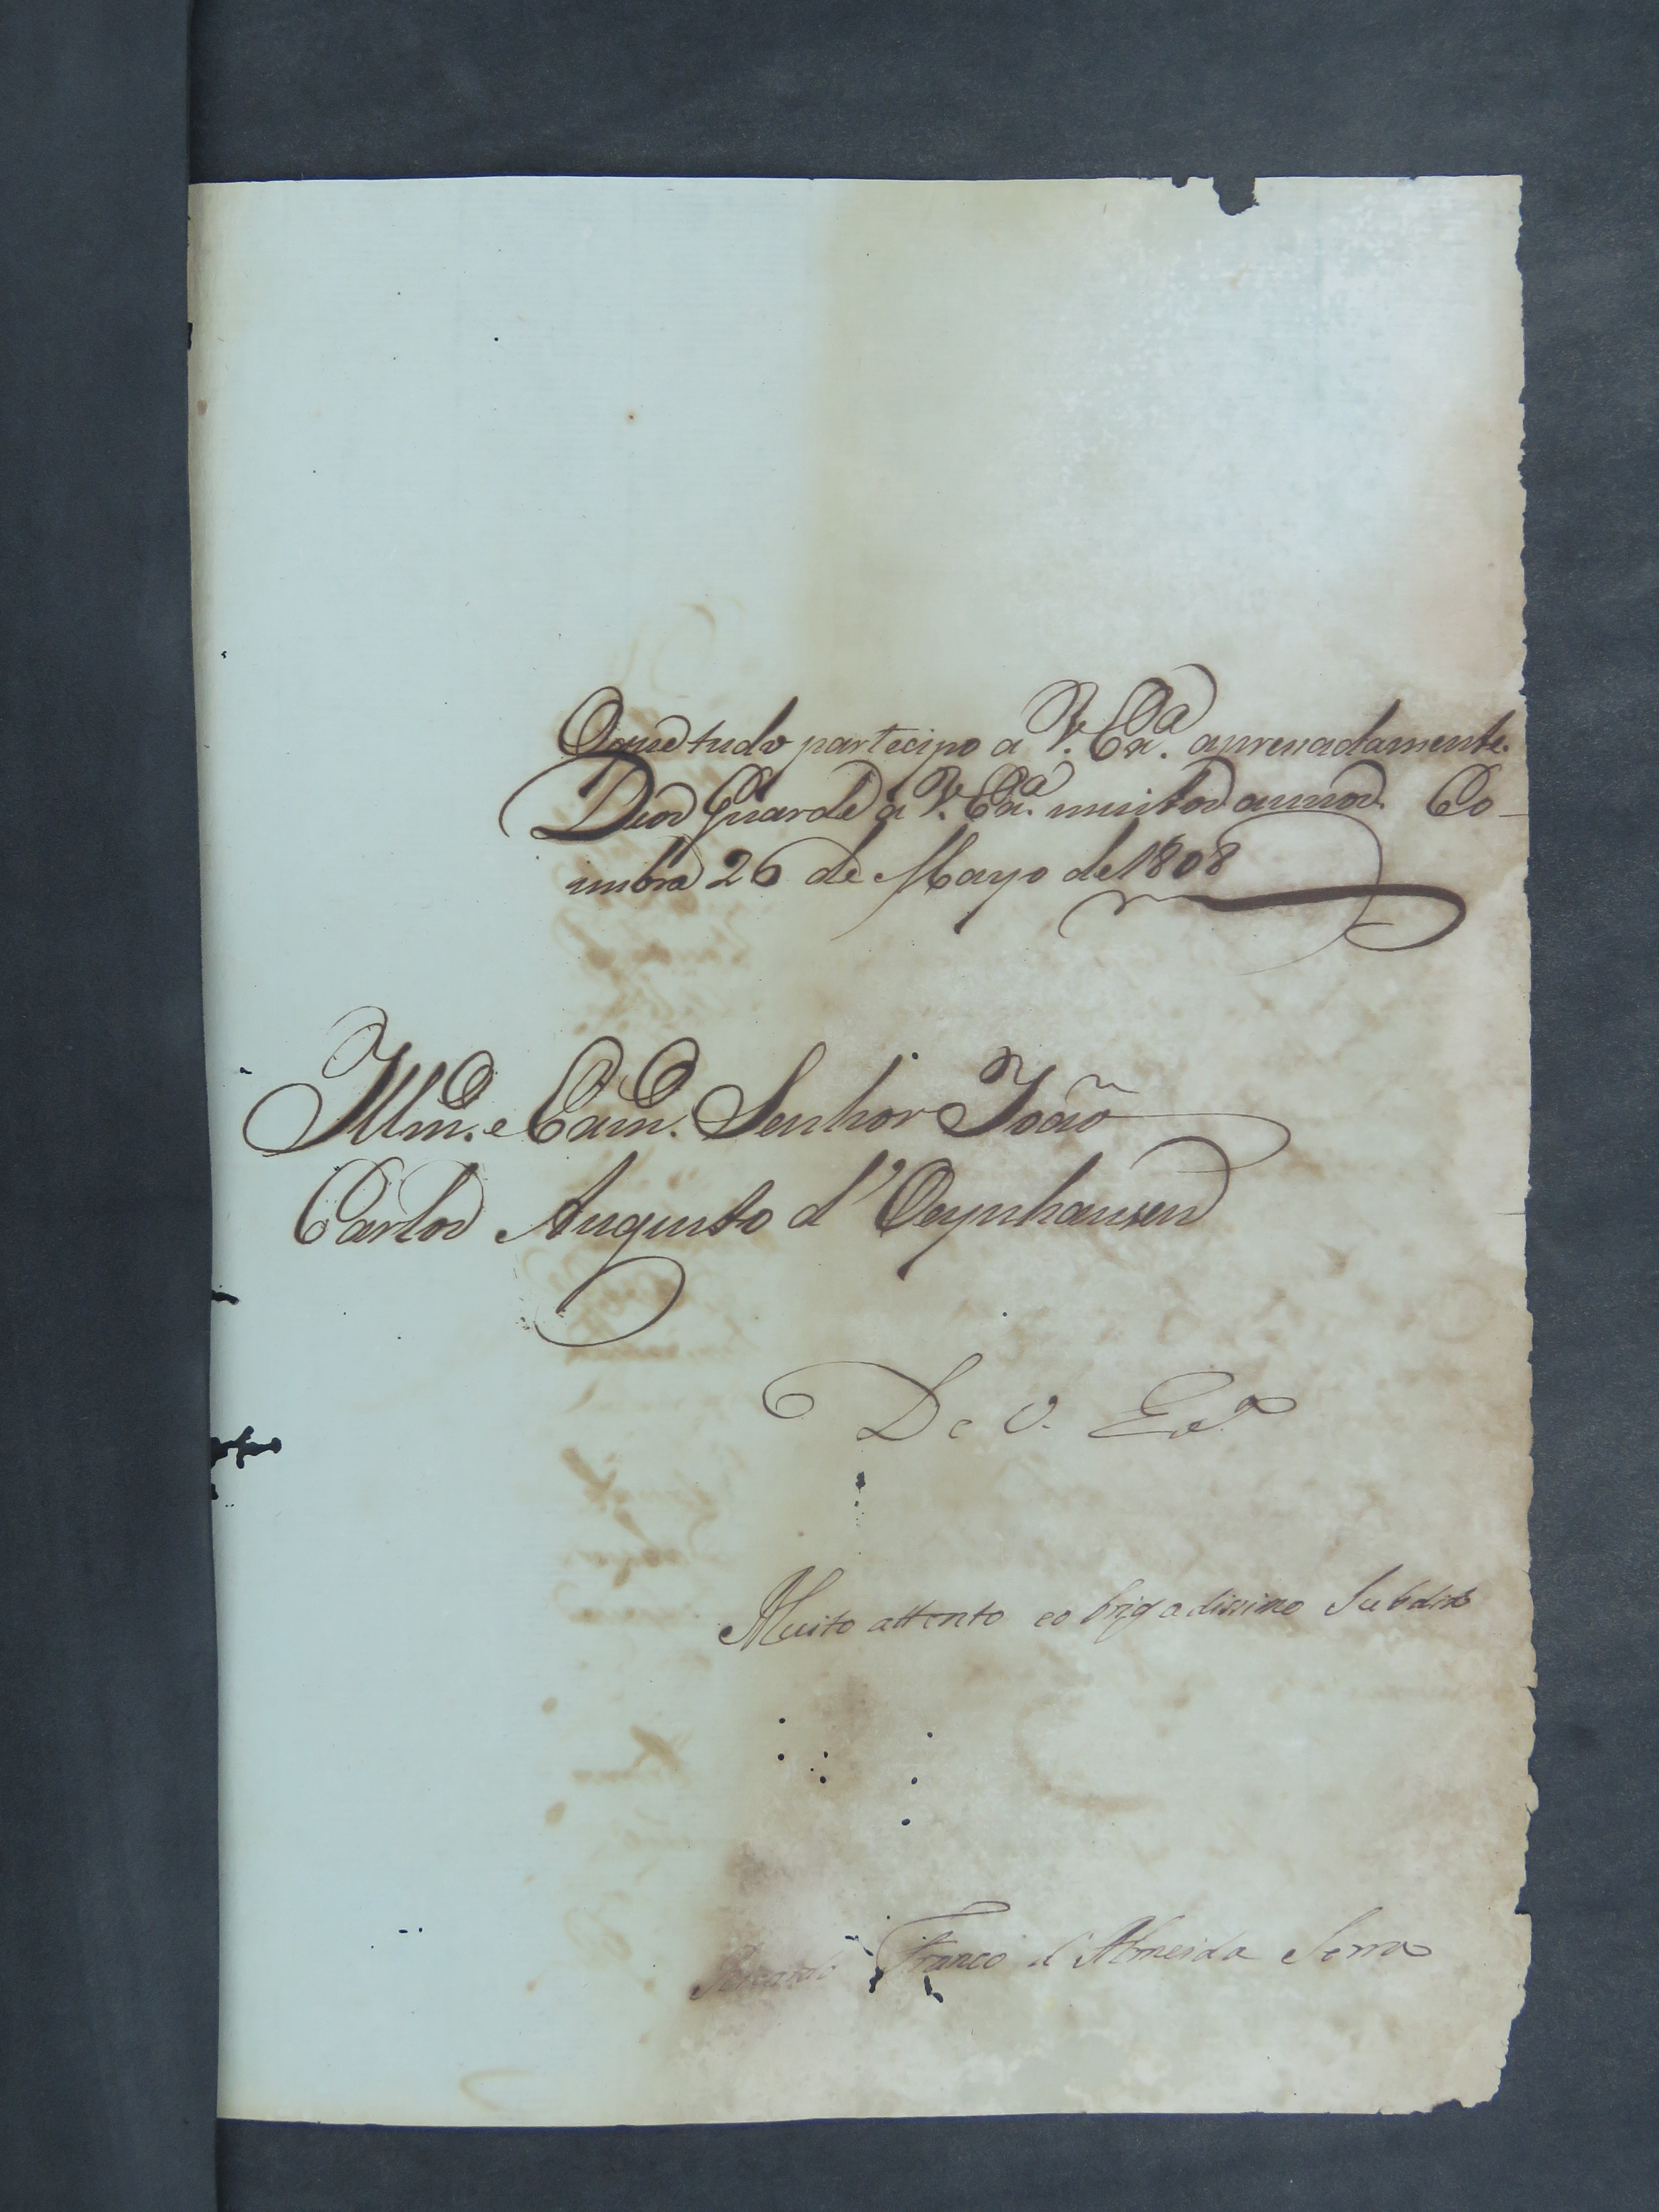 O que tudo partecipo a V. Exª. apressadamente.
Deos Guarde a V. Exª. muitos annos. Co-
imbra 26 de Mayo de 1808
Illmº. e Exmº. Senhor João
Carlos Augusto d'Oeynhausen
De V. Exª
Muito attento eobrigadissimo Subdito
Ricardo Franco d'Almeida Serra